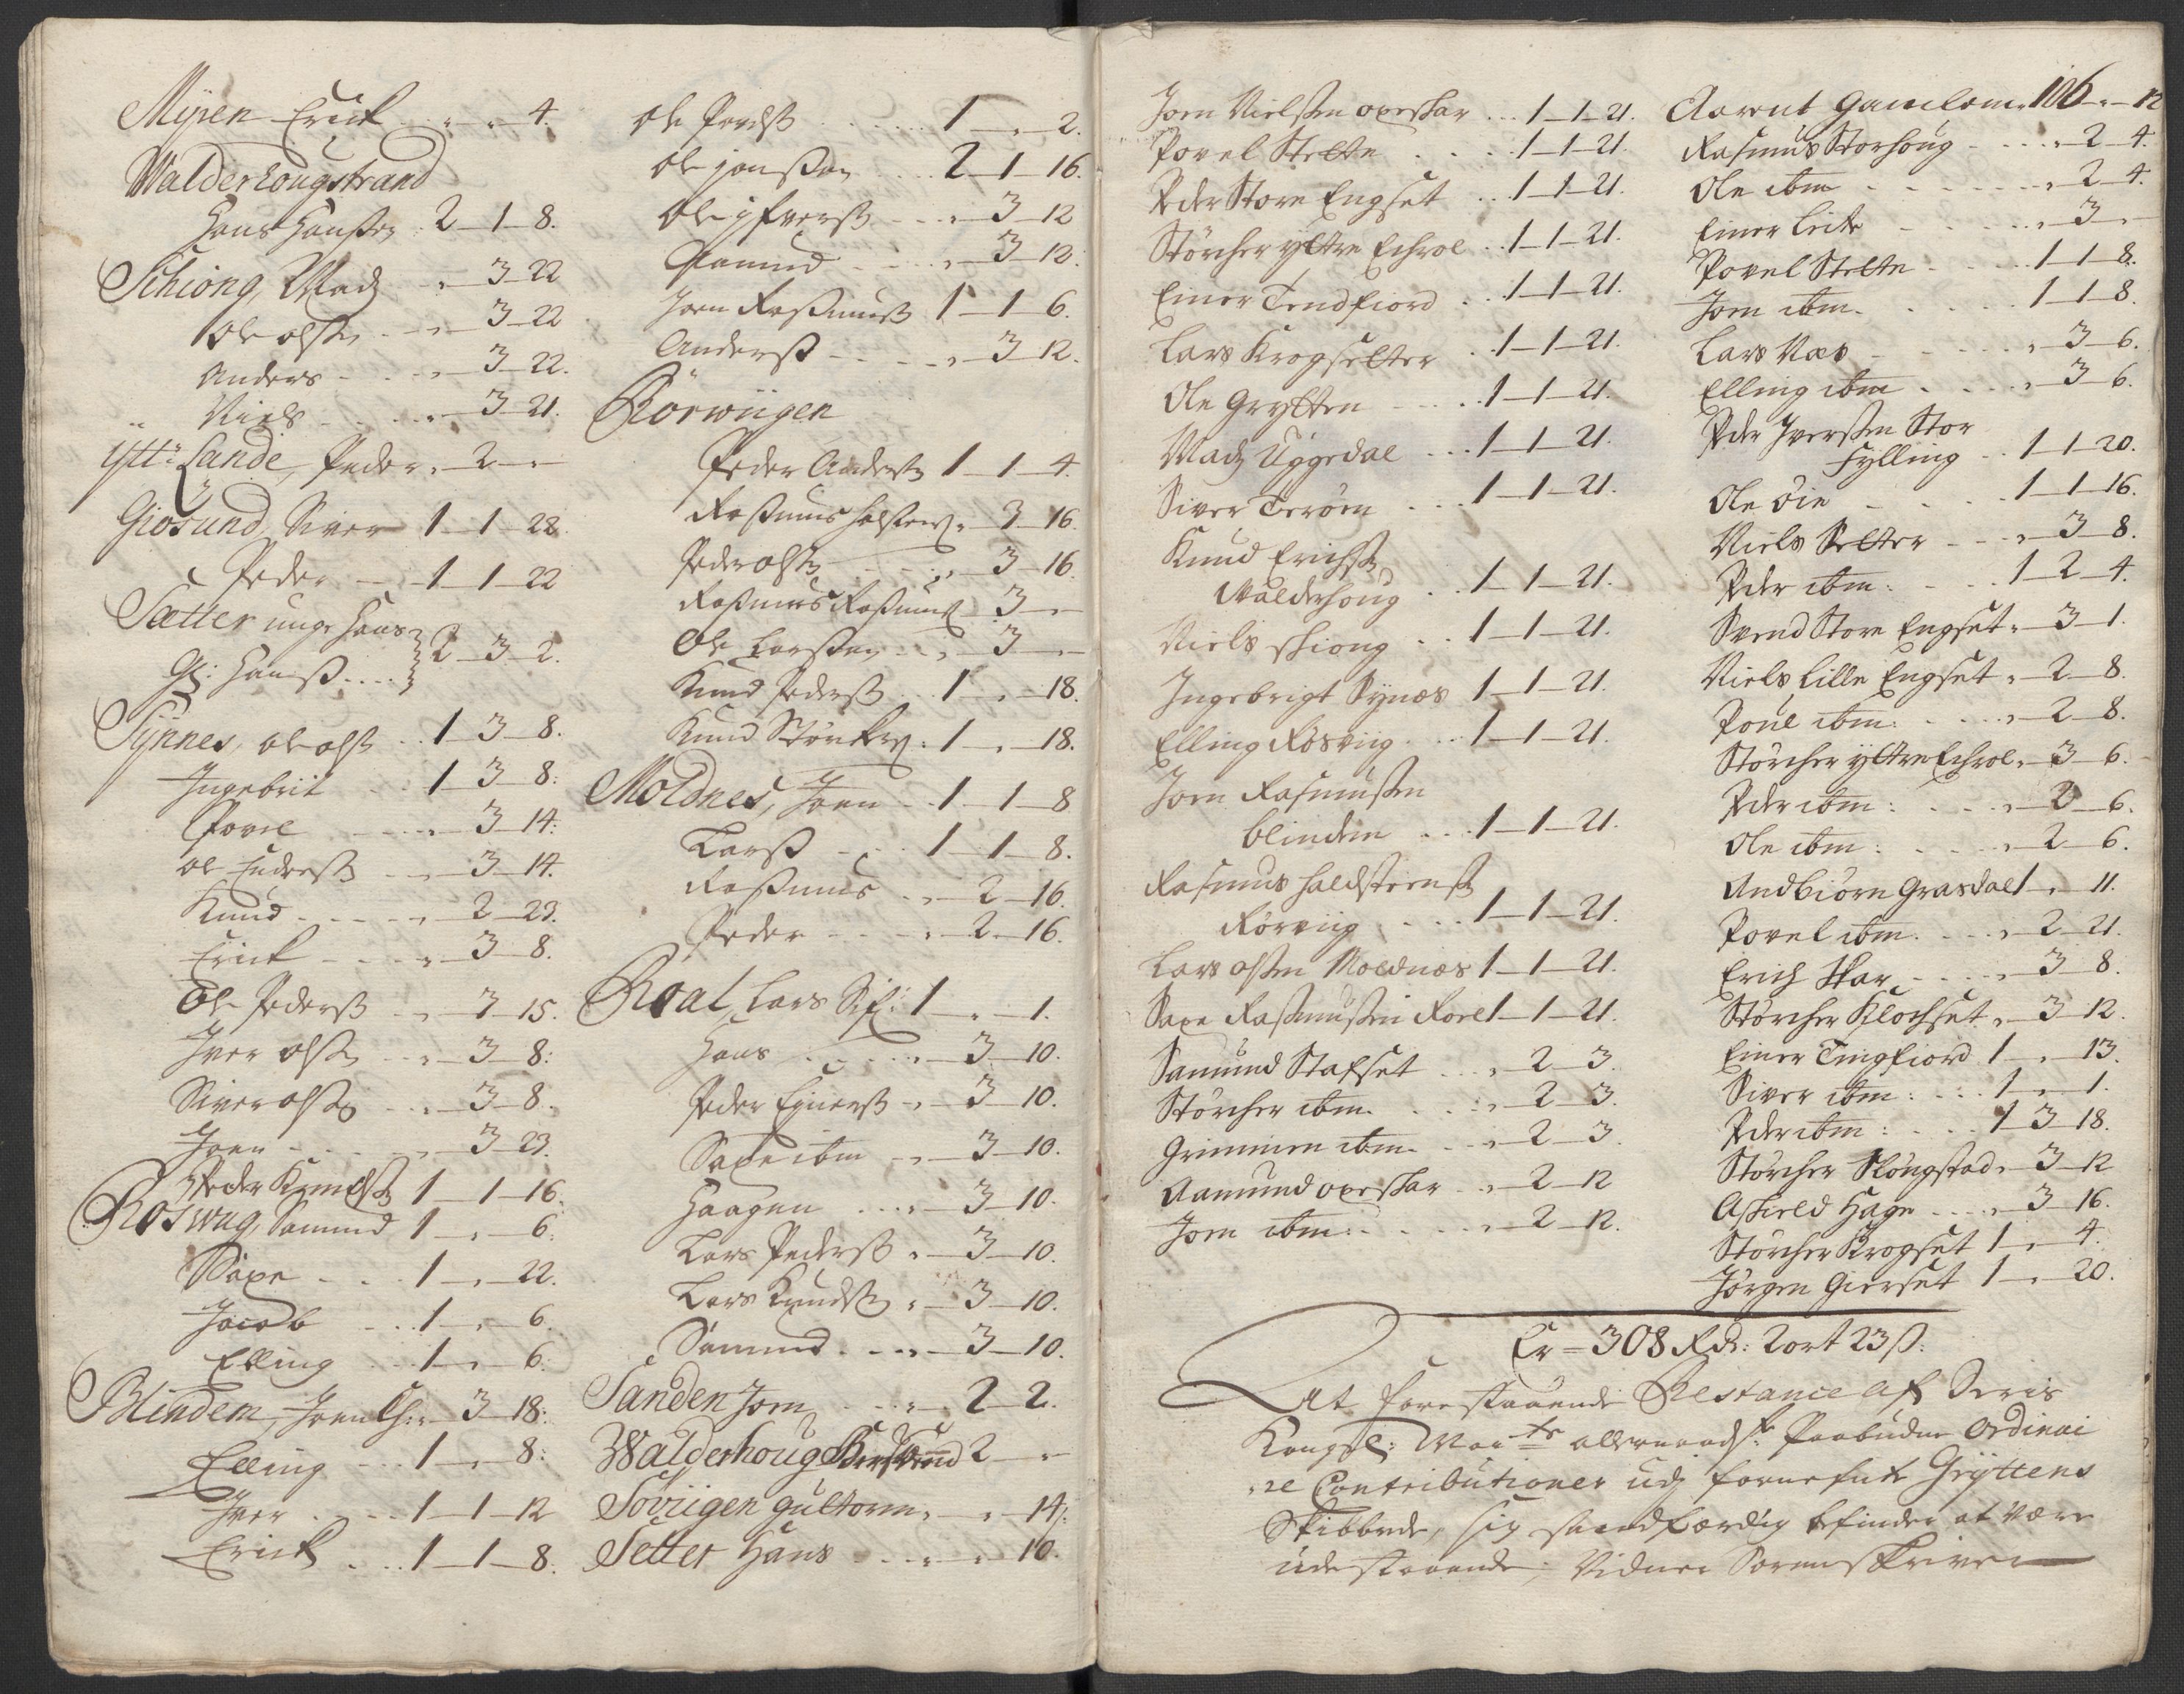 Myren Erick „ „ 4.
Walderhougstrand
Hans Hansen 2 – 1 – 8.
Schiong, Madz „ – 3 – 22
Ole Olsen „ – 3 – 22
Anders „ – 3 – 22.
Niels „ – 3 – 21.
Yttr: Lande, Peder „ – 2 – „
Giosund, Siver 1 – 1 – 22.
Peder 1 – 1 – 22
Sætter unge Hans } 2 – 3 – 2.
Gl: Hans
Synnes, Ole Olss 1 3 – 8.
Ingebrit 1 3 – 8:
Povel „ – 3 – 14:
Knud „ – 2 – 23.
Erick „ – 3 – 8.
Ole Pederss „ – 3 – 15.
Iver Olss „ – 3 – 8:
Siver Olss „ – 3 – 8.
Joen „ – 3 – 23.
Peder Knudss 1 – 1 – 16.
Roswug, Samund 1 – „ – 6.
Saxe 1 – „ – 22.
Jacob 1 – „ – 6.
Elling 1 – „ – 6.
Blindem, Joen „ – 3 – 18:
Elling 1 – „ – 8:
Iver 1 – 1 – 12
Erick 1 – 1 – 8.
Ole 1 – „ – 2.
Ole Jonssen 2 – 1 – 16.
Ole Ifverss „ – 3 – 12
Aamund „ – 3 – 12.
Joen Rassmuss 1 – 1 – 6.
Anderss „ – 3 – 12.
Rörwiigen
Peder Anders 1 – 1 – 4.
Rassmus „ 3 – 16.
Peder Olss „ 3 – 16.
Rassmus Rassmuss 3 – „
Ole Larssen „ – 3 – „
Knud Pederss 1 – „ – 18.
Knud Störkers 1 – „ – 18.
Moldnes, Joen 1 – 1 – 8
Larss 1 – 1 – 8.
Rassmus „ – 2 – 16.
Peder „ – 2 – 16.
Roal, Lars 1 – „ – 1.
Hans „ – 3 – 10.
Peder Ejnerss „ – 3 – 10.
Saxe ibm „ – 3 – 10.
Haagen „ – 3 – 10.
Lars Pederss „ – 3 – 10.
Lars Knudss „ – 3 – 10.
Samund „ – 3 – 10.
Sanden Joen „ – 2 – 2.
Walderhoug 2 – „
Söviigen Gultorm „ – „ – 14.
Setter Hans „ „ 10.
Joen Nielssen Oxeskar 1 – 1 – 21.
Povel Stette 1 – 1 – 21.
Peder Store Engset 1 – 1 – 21.
Störcher Yttre Echrol 1 – 1 – 21.
Einer Tendfiord 1 – 1 – 21.
Lars Krogsetter 1 – 1 – 21.
Ole Grytten 1 – 1 – 21.
Madz Uggedal 1 – 1 – 21.
Siver Teröen 1 – 1 – 21.
Knud Erichss
Walderhoug 1 – 1 – 21.
Niels Skiong 1 – 1 – 21.
Ingebrigt Synæs 1 – 1 – 21.
Elling Rösviig 1 – 1 – 21.
Joen Rasmussen
Blindem 1 – 1 – 21.
Rasmus Haldsteenss
Rörviig 1 – 1 – 21.
Lars Olssen Moldnæs 1 – 1 – 21.
Saxe Rasmussen Roel 1 – 1 – 21.
Samund Stafset „ 2 – 3.
Störcher ibm. „ 2 – 3.
Grimmen ibm. „ 2 – 3.
Aamund Oxeskar „ 2 – 12
Joen ibm: „ – 2 – 12.
106
Aarent Gamlem „ – 12
Rasmus Storhoug „ 2 – 4.
Ole ibm „ 2 – 4.
Einer Leite „ 3 „
Povel Stette 1 – 1 – 8.
Joen ibm. 1 – 1 – 8.
Lars Næs „ 3 – 6.
Elling ibm „ 3 – 6.
Peder Iverssen Stor
Fylling 1 – 1 – 20.
Ole Öie 1 – 1 – 16.
Niels Setter „ 3 – 8.
Peder ibm: 1 – 2 – 4.
Svend Store Engset „ 3 – 1.
Niels Lille Engset „ 2 – 8.
Poul ibm. „ 2 – 8.
Störcher Yttre Echrol „ 3 – 6.
Peder ibm: „ 2 – 6.
Ole ibm: „ 2 – 6.
Andbiörn Grasdal 1 – „ – 11.
Povel ibm. „ 2 – 21.
Erich Skar „ 3 – 8.
Störcher Klochset „ 3 – 12.
Einer Tingfiord 1 – „ – 13.
Siver ibm: 1 – „ – 1.
Peder ibm: 1 3 – 18.
Störcher Slöngstad „ 3 – 12
Askield Hage „ 3 – 16.
Störcher Krogset 1 – „ – 4.
Jörgen Gierset 1 – „ 20.
Er = 308 Rdr: 2 ort 23 ß.
At forestaaende Restance af Deris
Kongel: May:ts allernaadigste Paabudne Ordinai
re Contributioner udj fornefnte Gryttens
Skibbrede, sig sandfærdig befinder at være
udestaaende, Vidner Sorenskriver